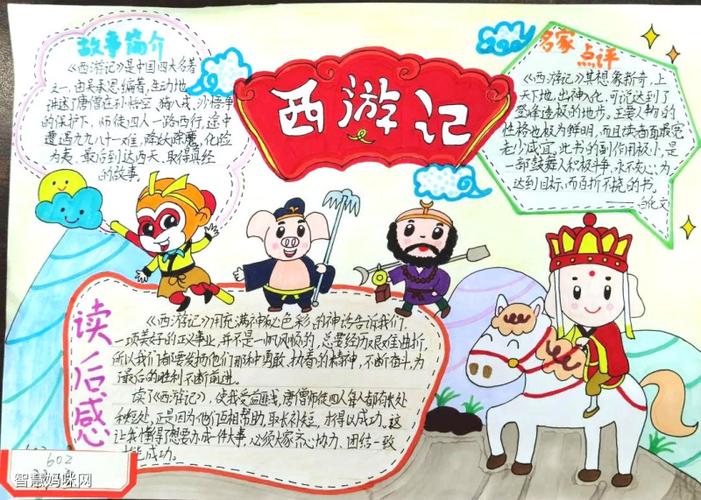 西游记
故事简介
《西游记》是中国四大名著
之一,由吴承恩编著,生动地
讲述了唐僧在孙悟空、猪八戒、沙悟净
的保护下,师徒四人一路西行,途中
遭遇九九八十一难,降妖除魔,化险
为夷,最后到达西天、取得真经
的故事。
名家点评
《西游记》其想象新奇,上
天下地,出神入化,可说达到了
登峰造极的地步。主要人物的
性格也极为鲜明,而且读者面最宽
老少咸宜。此书的副作用极小,是
一部鼓舞人积极斗争、永不灰心,为
达到目标,而百折不挠的书。
——白化文
读后感
《西游记》用充满神秘色彩的神话告诉我们,
一项美好的正义事业,并不是一帆风顺的,总要经历艰难曲折,
所以我们都要发扬他们那种勇敢、执着的精神,不断奋斗,为
最后的胜利不断前进。
读了《西游记》,使我受益匪浅,唐僧师徒四人每人都有长处
和短处,正是因为他们互相帮助、取长补短,才得以成功。这
让我懂得了想要办成一件大事,必须大家齐心协力、团结一致
才能成功。
602
智慧妈咪网